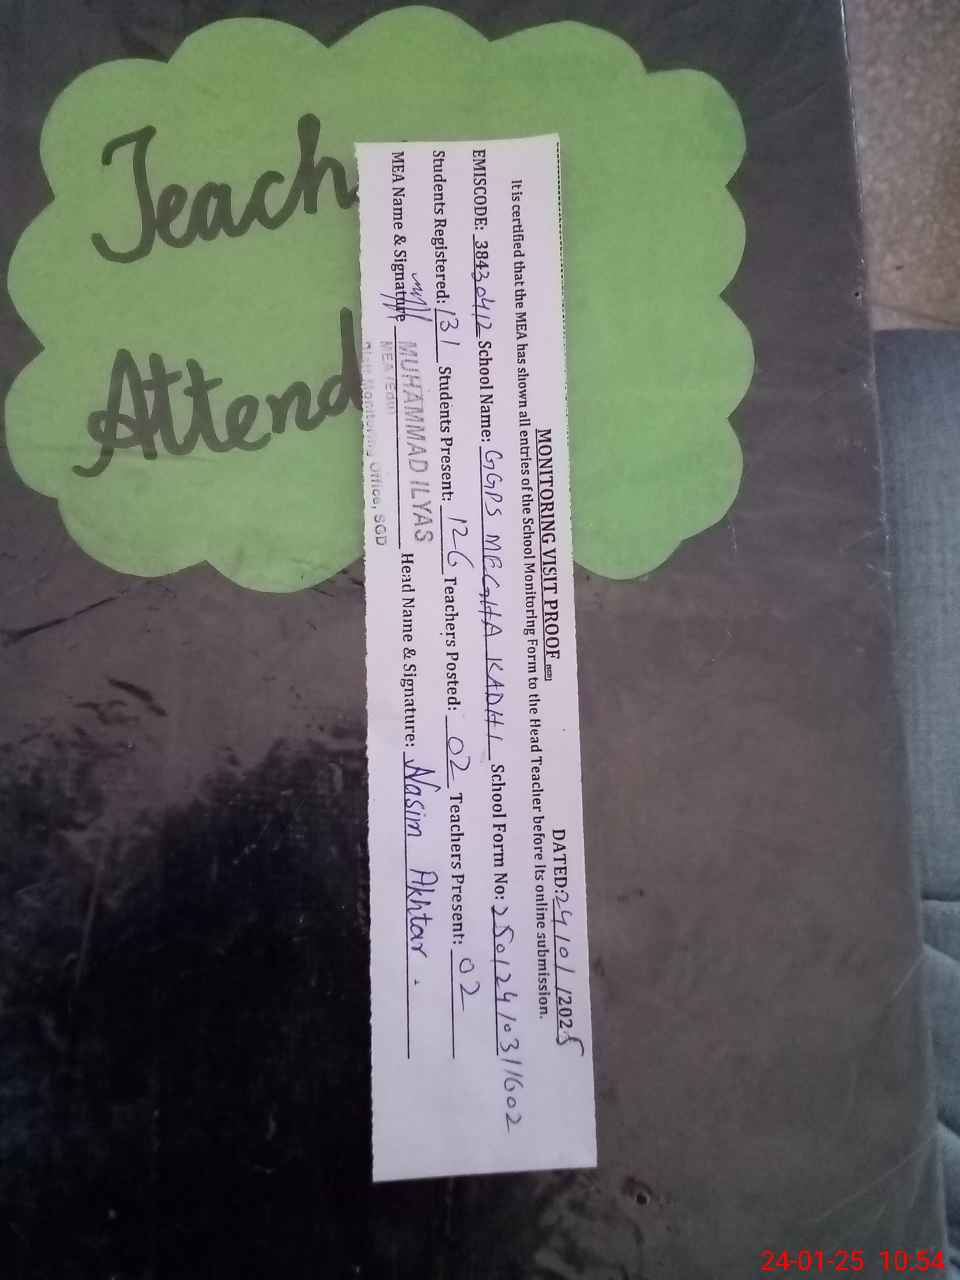 Teach
Attend
MONITORING VISIT PROOF
DATED: 24/01/2025
It is certified that the MEA has shown all entries of the School Monitoring Form to the Head Teacher before its online submission.
EMISCODE: 38430412 School Name: GGPS MEGHA KADHI School Form No: 25012410311602
Students Registered: 131 Students Present: 126 Teachers Posted: 02 Teachers Present: 02
MEA Name & Signature MUHAMMAD ILYAS Head Name & Signature: Nasim Akhtar
MEA (Edu)
Monitoring Office, SGD
24-01-25 10:54